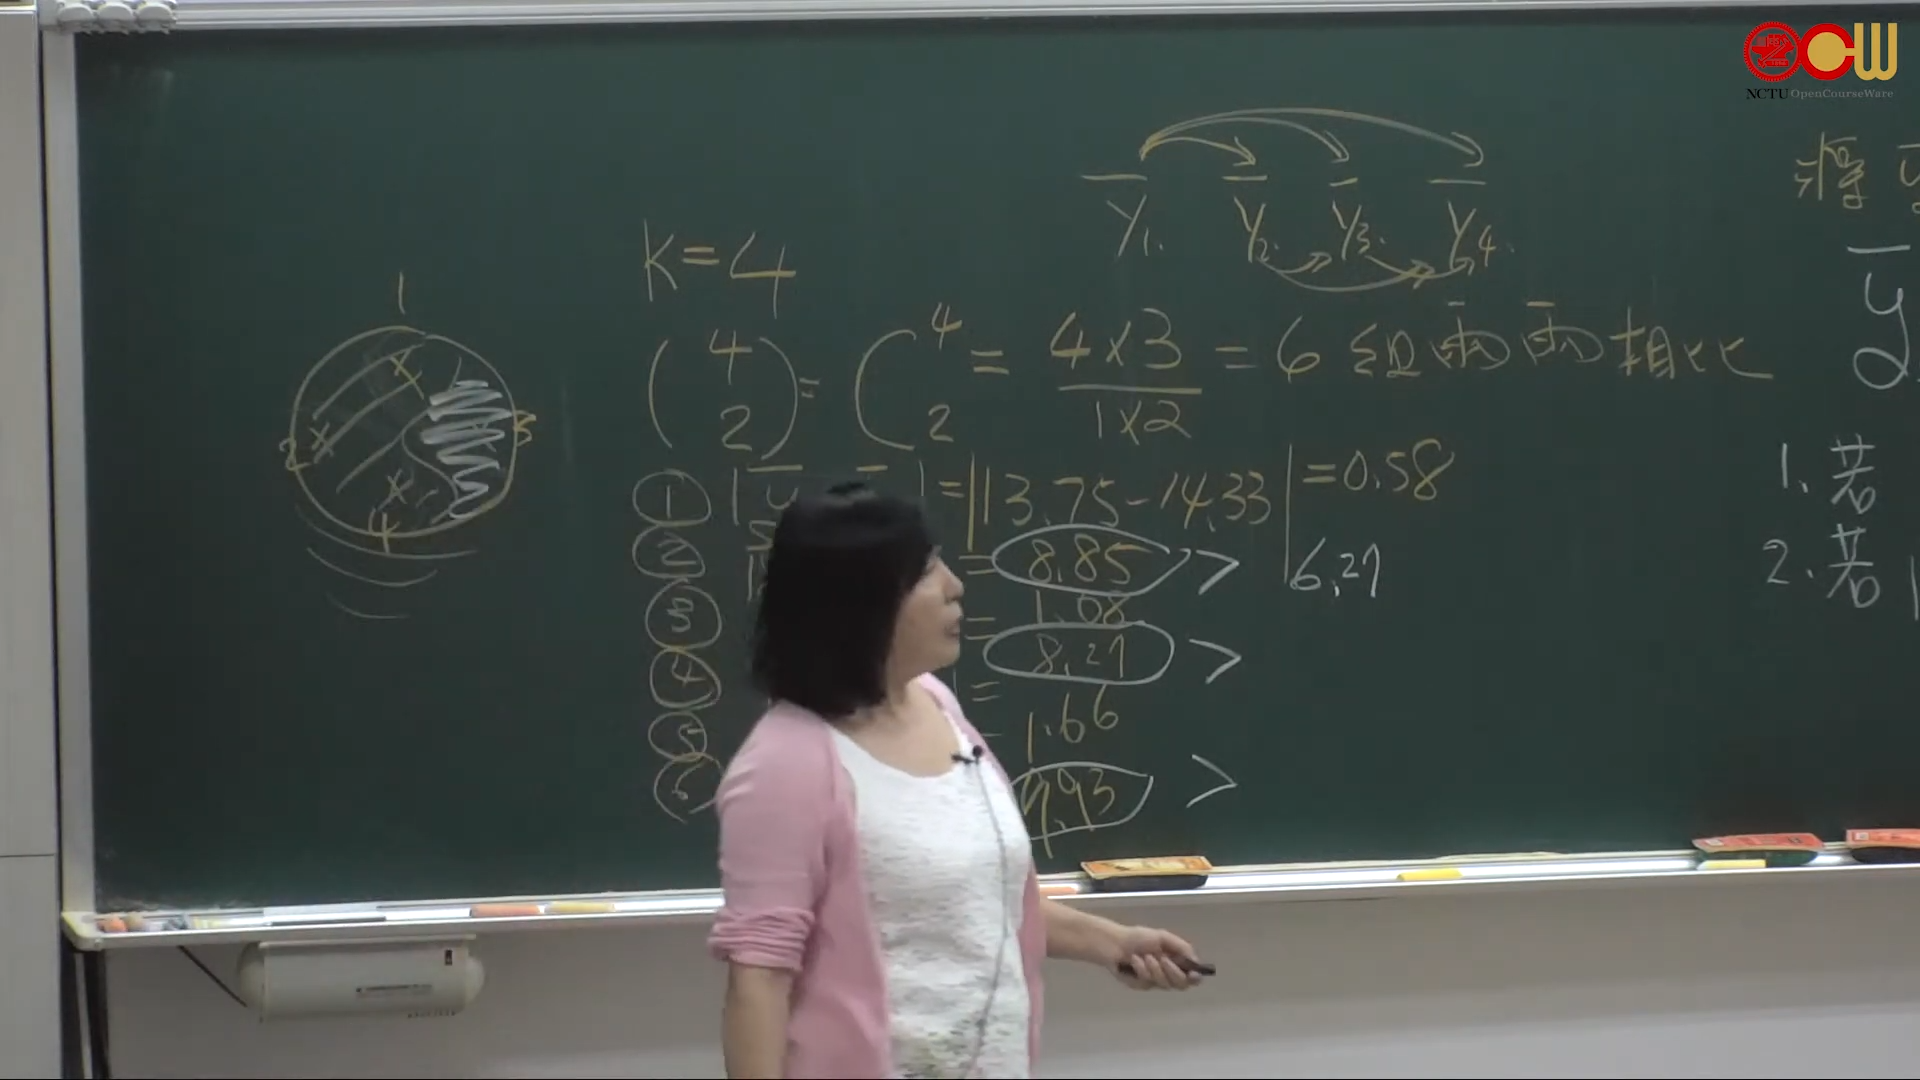 NCTU OpenCourseWare
ȳ₁. ȳ₂. ȳ₃. ȳ₄.
K=4
(4 2) = C 4 2 = 4×3 / 1×2 = 6 組兩兩相比
① = |13.75-14.33| = 0.58
② = 8.85 > 6.27
③ = 1.08
④ = 8.27 >
⑤ = 1.66
⑥ 9.93 >
1
2
3
4
將
ȳ
1. 若
2. 若